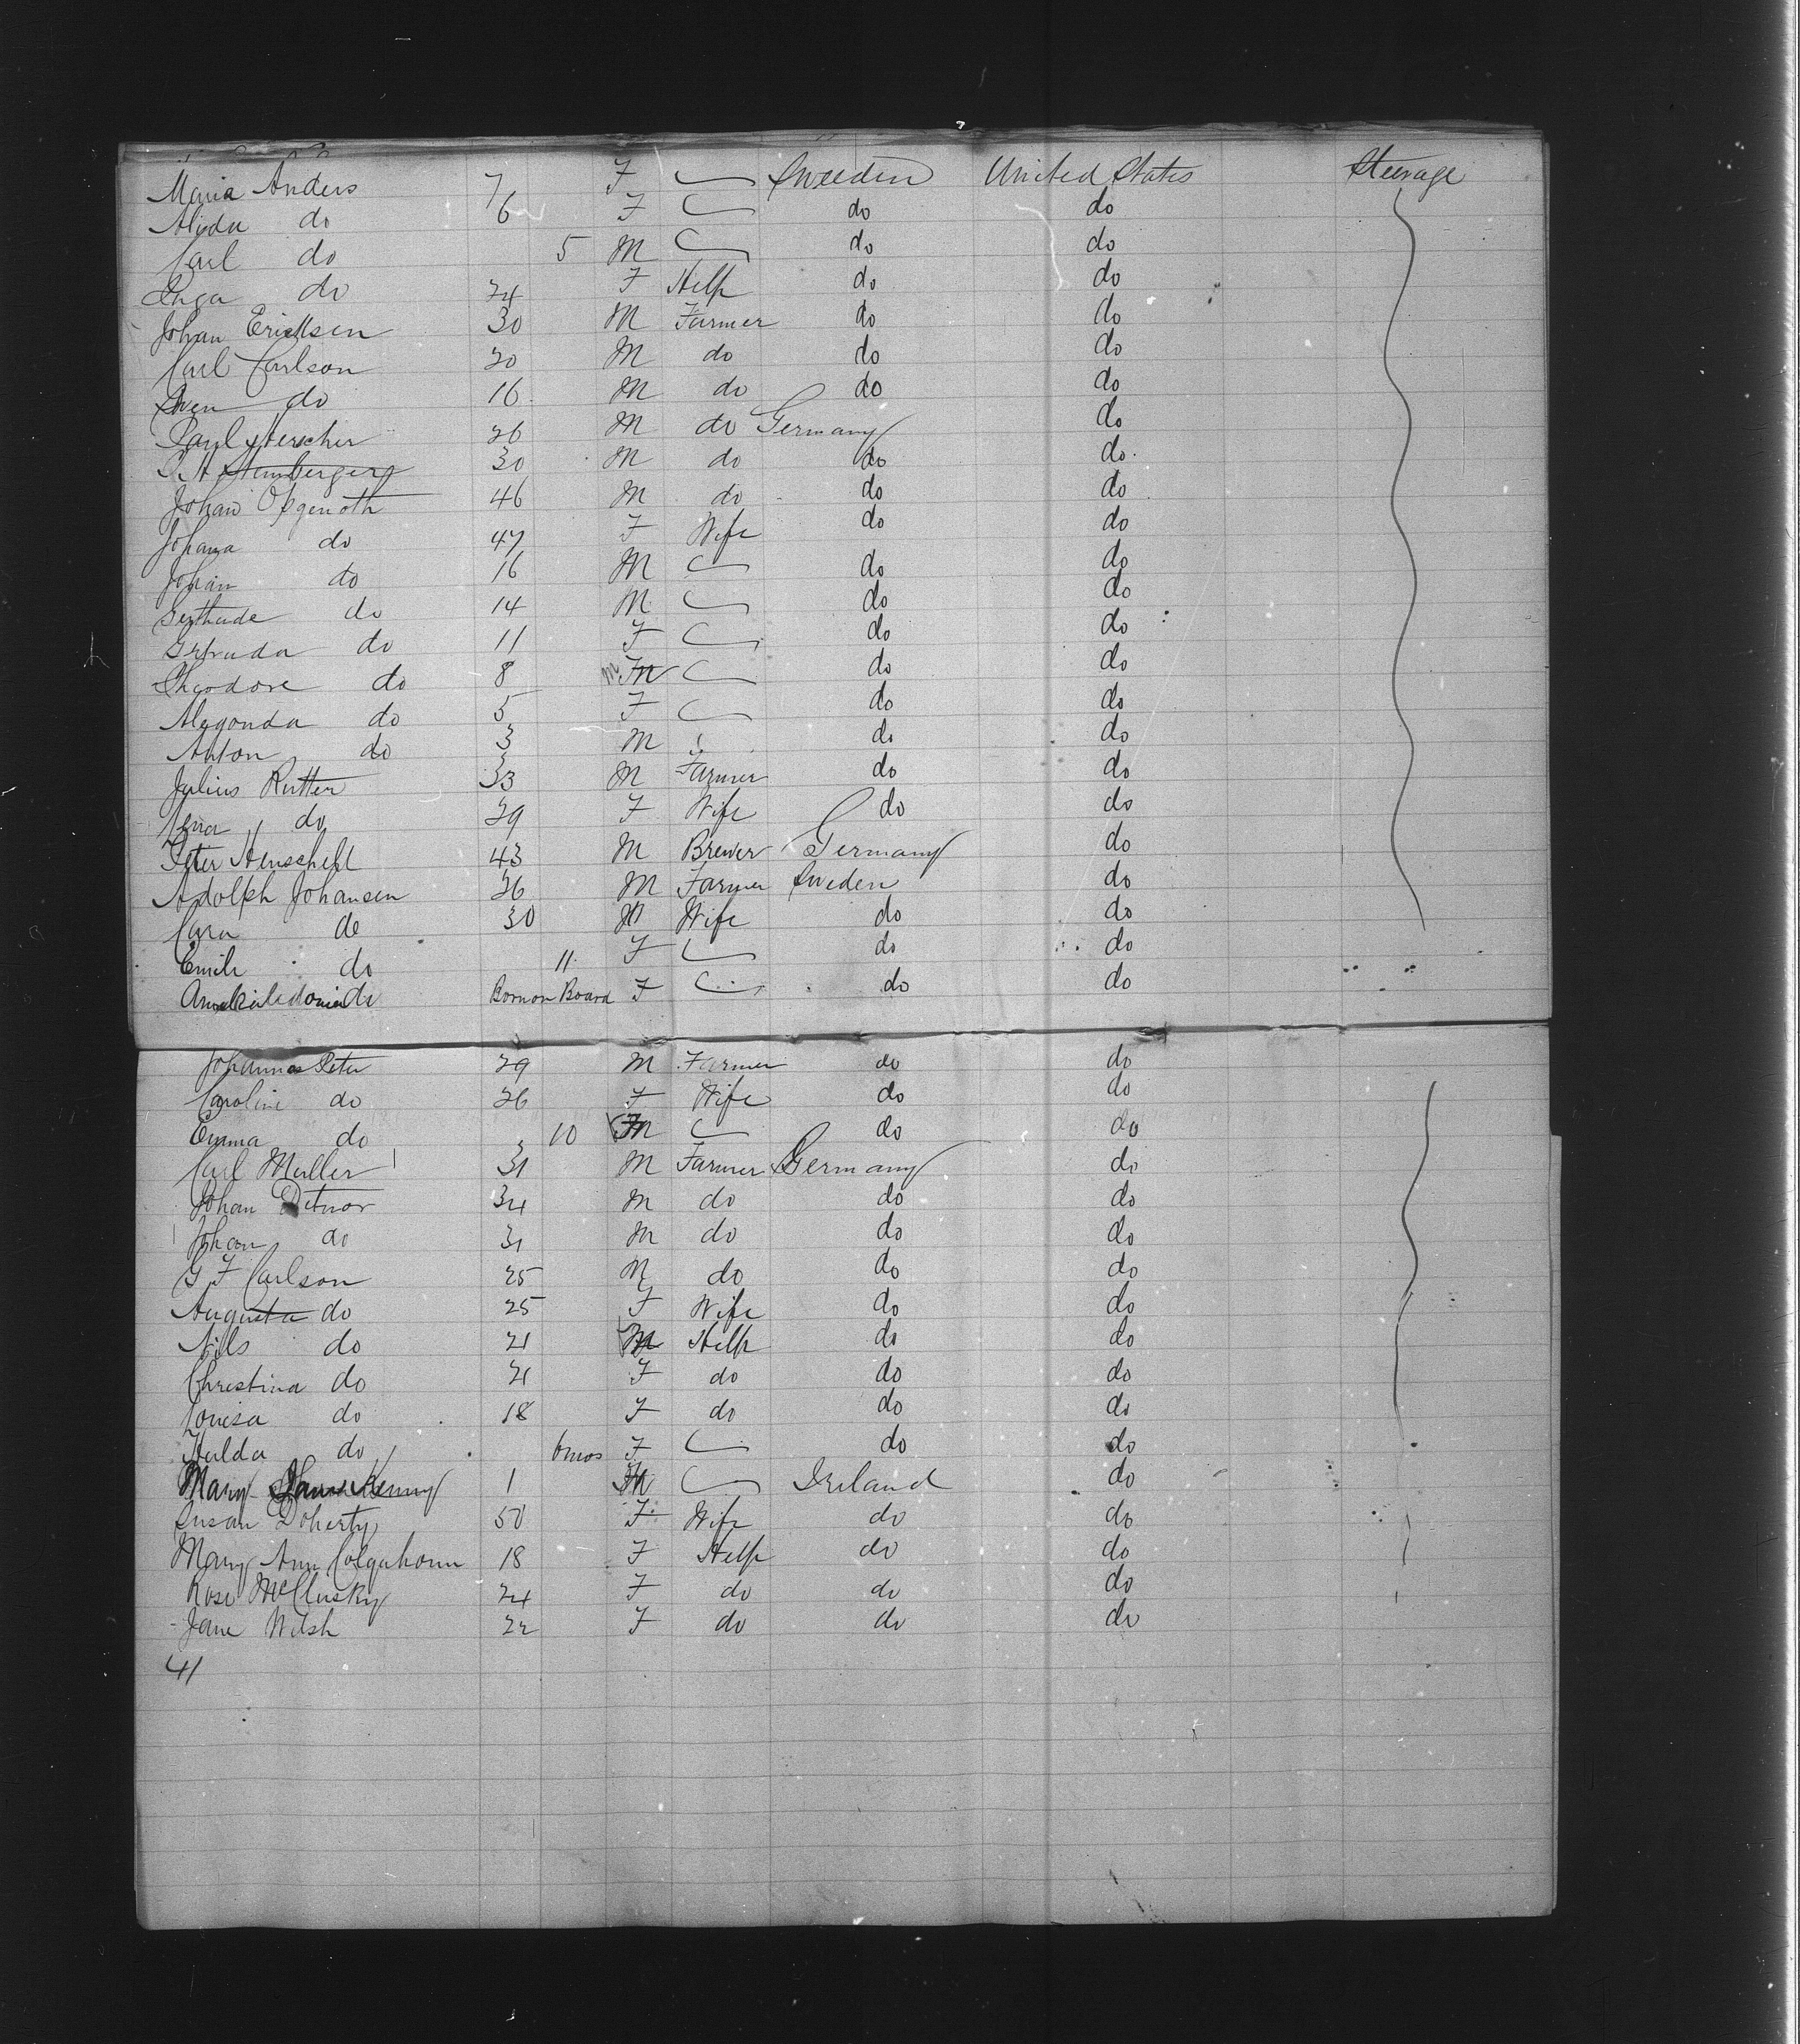 Maria Anders 7 F Sweeden United States Steerage
Alida do 6 F do do
Carl do 5 M do do
Inga do 24 F Help do do
Johan Ericksen 30 M Farmer do do
Carl Carlson 20 M do do do
Swen do 16 M do do do
Paul Herscher 26 M do Germany do
30 M do do do
Johan Opgenoth 46 M do do do
Johana do 47 F Wife do do
Johan do 16 M do do
Gerthude do 14 M do do
Gertruda do 11 F do do
Theodore do 8 M do do
Alegonda do 5 F do do
Anton do 3 M do do
Julius Rutter 33 M Farmer do do
Lena do 29 F Wife do do
Peter Henschell 43 M Brewer Germany do
Adolph Johansen 26 M Farmer Sweden do
Cara do 30 Wife do do
Emile do 11 F do do
do Born on Board F do do
Johannes Peter 29 M Farmer do do
Caroline do 26 F Wife do do
Emma do 10 do do
Carl Muller 31 M Farmer Germany do
Johan 34 M do do do
Johan do 31 M do do do
G F Carlson 25 M do do do
Augusta do 25 F Wife do do
Nils do 21 M Help do do
Christina do 21 F do do do
Louisa do 18 F do do do
Hulda do 6 mos F do do
Mary Kenny 1 Ireland do
Susan Doherty 50 F Wife do do
Mary Ann Colquhoun 18 F Help do do
Rose McClusky 24 F do do do
Jane Welsh 22 F do do do
41